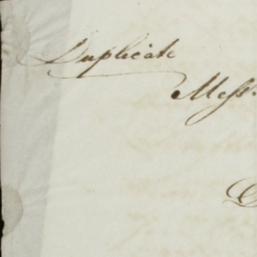 Duplicate
Mess